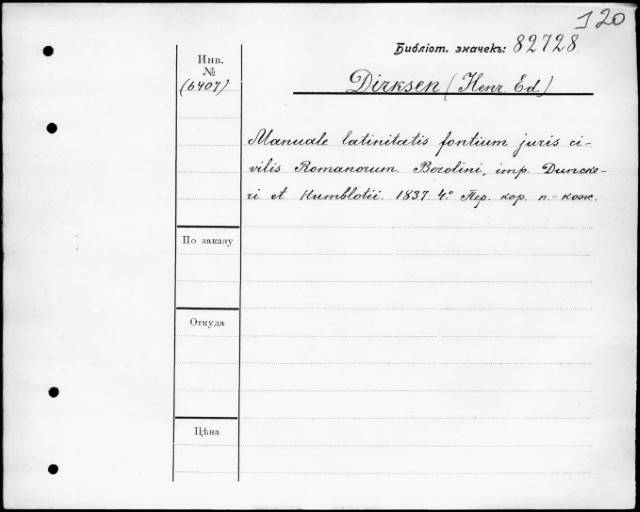 120
Библіот. значекъ: 82728
Инв.
№
(6407)
Dirksen (Henr. Ed.)
Manuale latinitatis fontium juris ci-
vilis Romanorum. Berolini, imp. Duncke-
ri et Humblotii. 1837. 4.° Пер. кор. п.-кож.
По заказу
Откуда
Цѣна